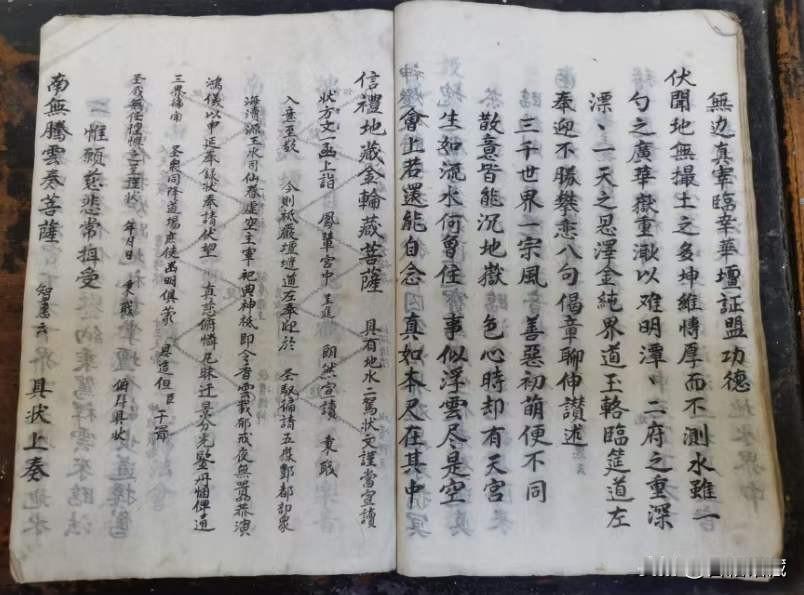 無边真宰臨幸華壇証盟功德
伏聞地無撮土之多坤維愽厚而不測水雖一
勺之廣華嶽重㵢以难明潭、二府之重深
漂、一天之恩澤金純界道玉輅臨筵道左
奉迎不勝攀恋八句偈章聊伸讃述
三千世界一宗風 善惡初萌便不同
散意皆能沉地嶽 色心時却有天宮
生如流水何曾住 事似浮雲尽是空
會上若還能自念 真如本尺在其中
信禮地藏金輪藏菩薩 具有地水二萬状文謹當宣讀
状方文一函上詣 鳳輦宮中 呈進 頋然宣讀 秉戢
入意至敦 今則祗嚴壇墶道左奉迎於 圣馭徧請五嶽酆都
海瀆源王水司仙眷虚空主宰 祀典神祇即令香雲靉郁戒夜無囂恭演
鴻儀以申延奉錄状奉請伏望 真慈俯憐尼昧迂景分光鑒丹悃俾道
三界徧南 圣衆同降道場庶使幽明俱蒙 具造但臣 干冒
圣威無任惶惧之至謹状 年月日 秉戢 俯拜具状
惟願慈悲常摂受
南無騰雲奏菩薩 智惠云 具状上奏